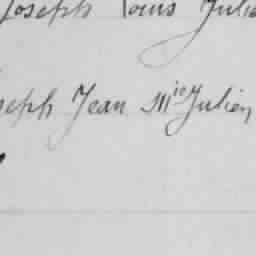 Joseph Louis Julie
seph Jean Mie Julien